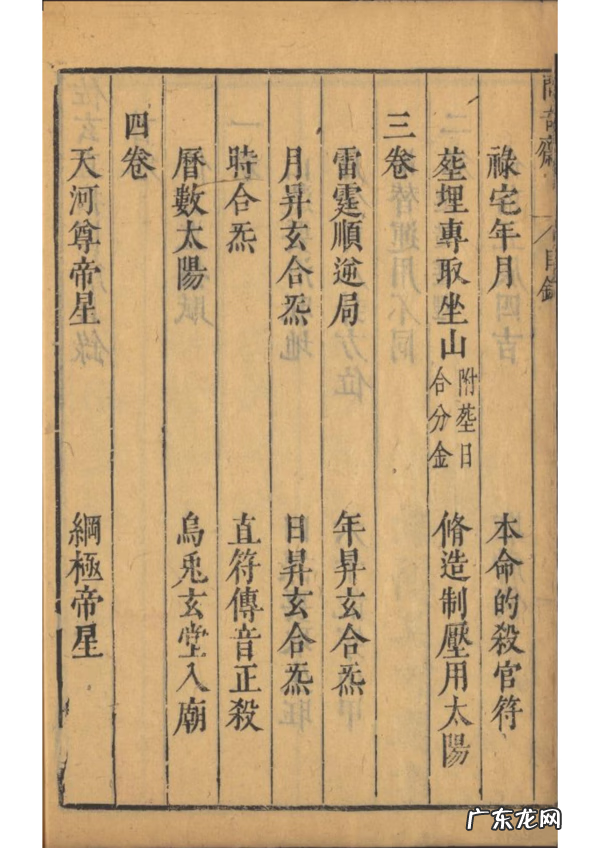 祿宅年月　本命的殺官符
塟埋專取坐山附塟日合分金　脩造制壓用太陽
三卷
雷霆順逆局　年昇玄合炁
月昇玄合炁　日昇玄合炁
時合炁　直符傳音正殺
曆數太陽　烏兎玄堂入廟
四卷
天河尊帝星　綱極帝星
目錄
广东龙网